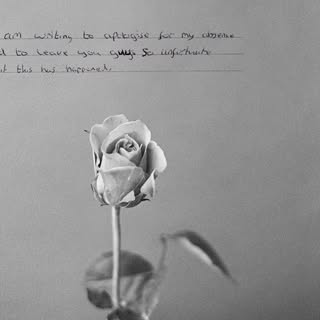 am writing to apologise for my absence
d to leave you guys so unfortunate
at this has happened.